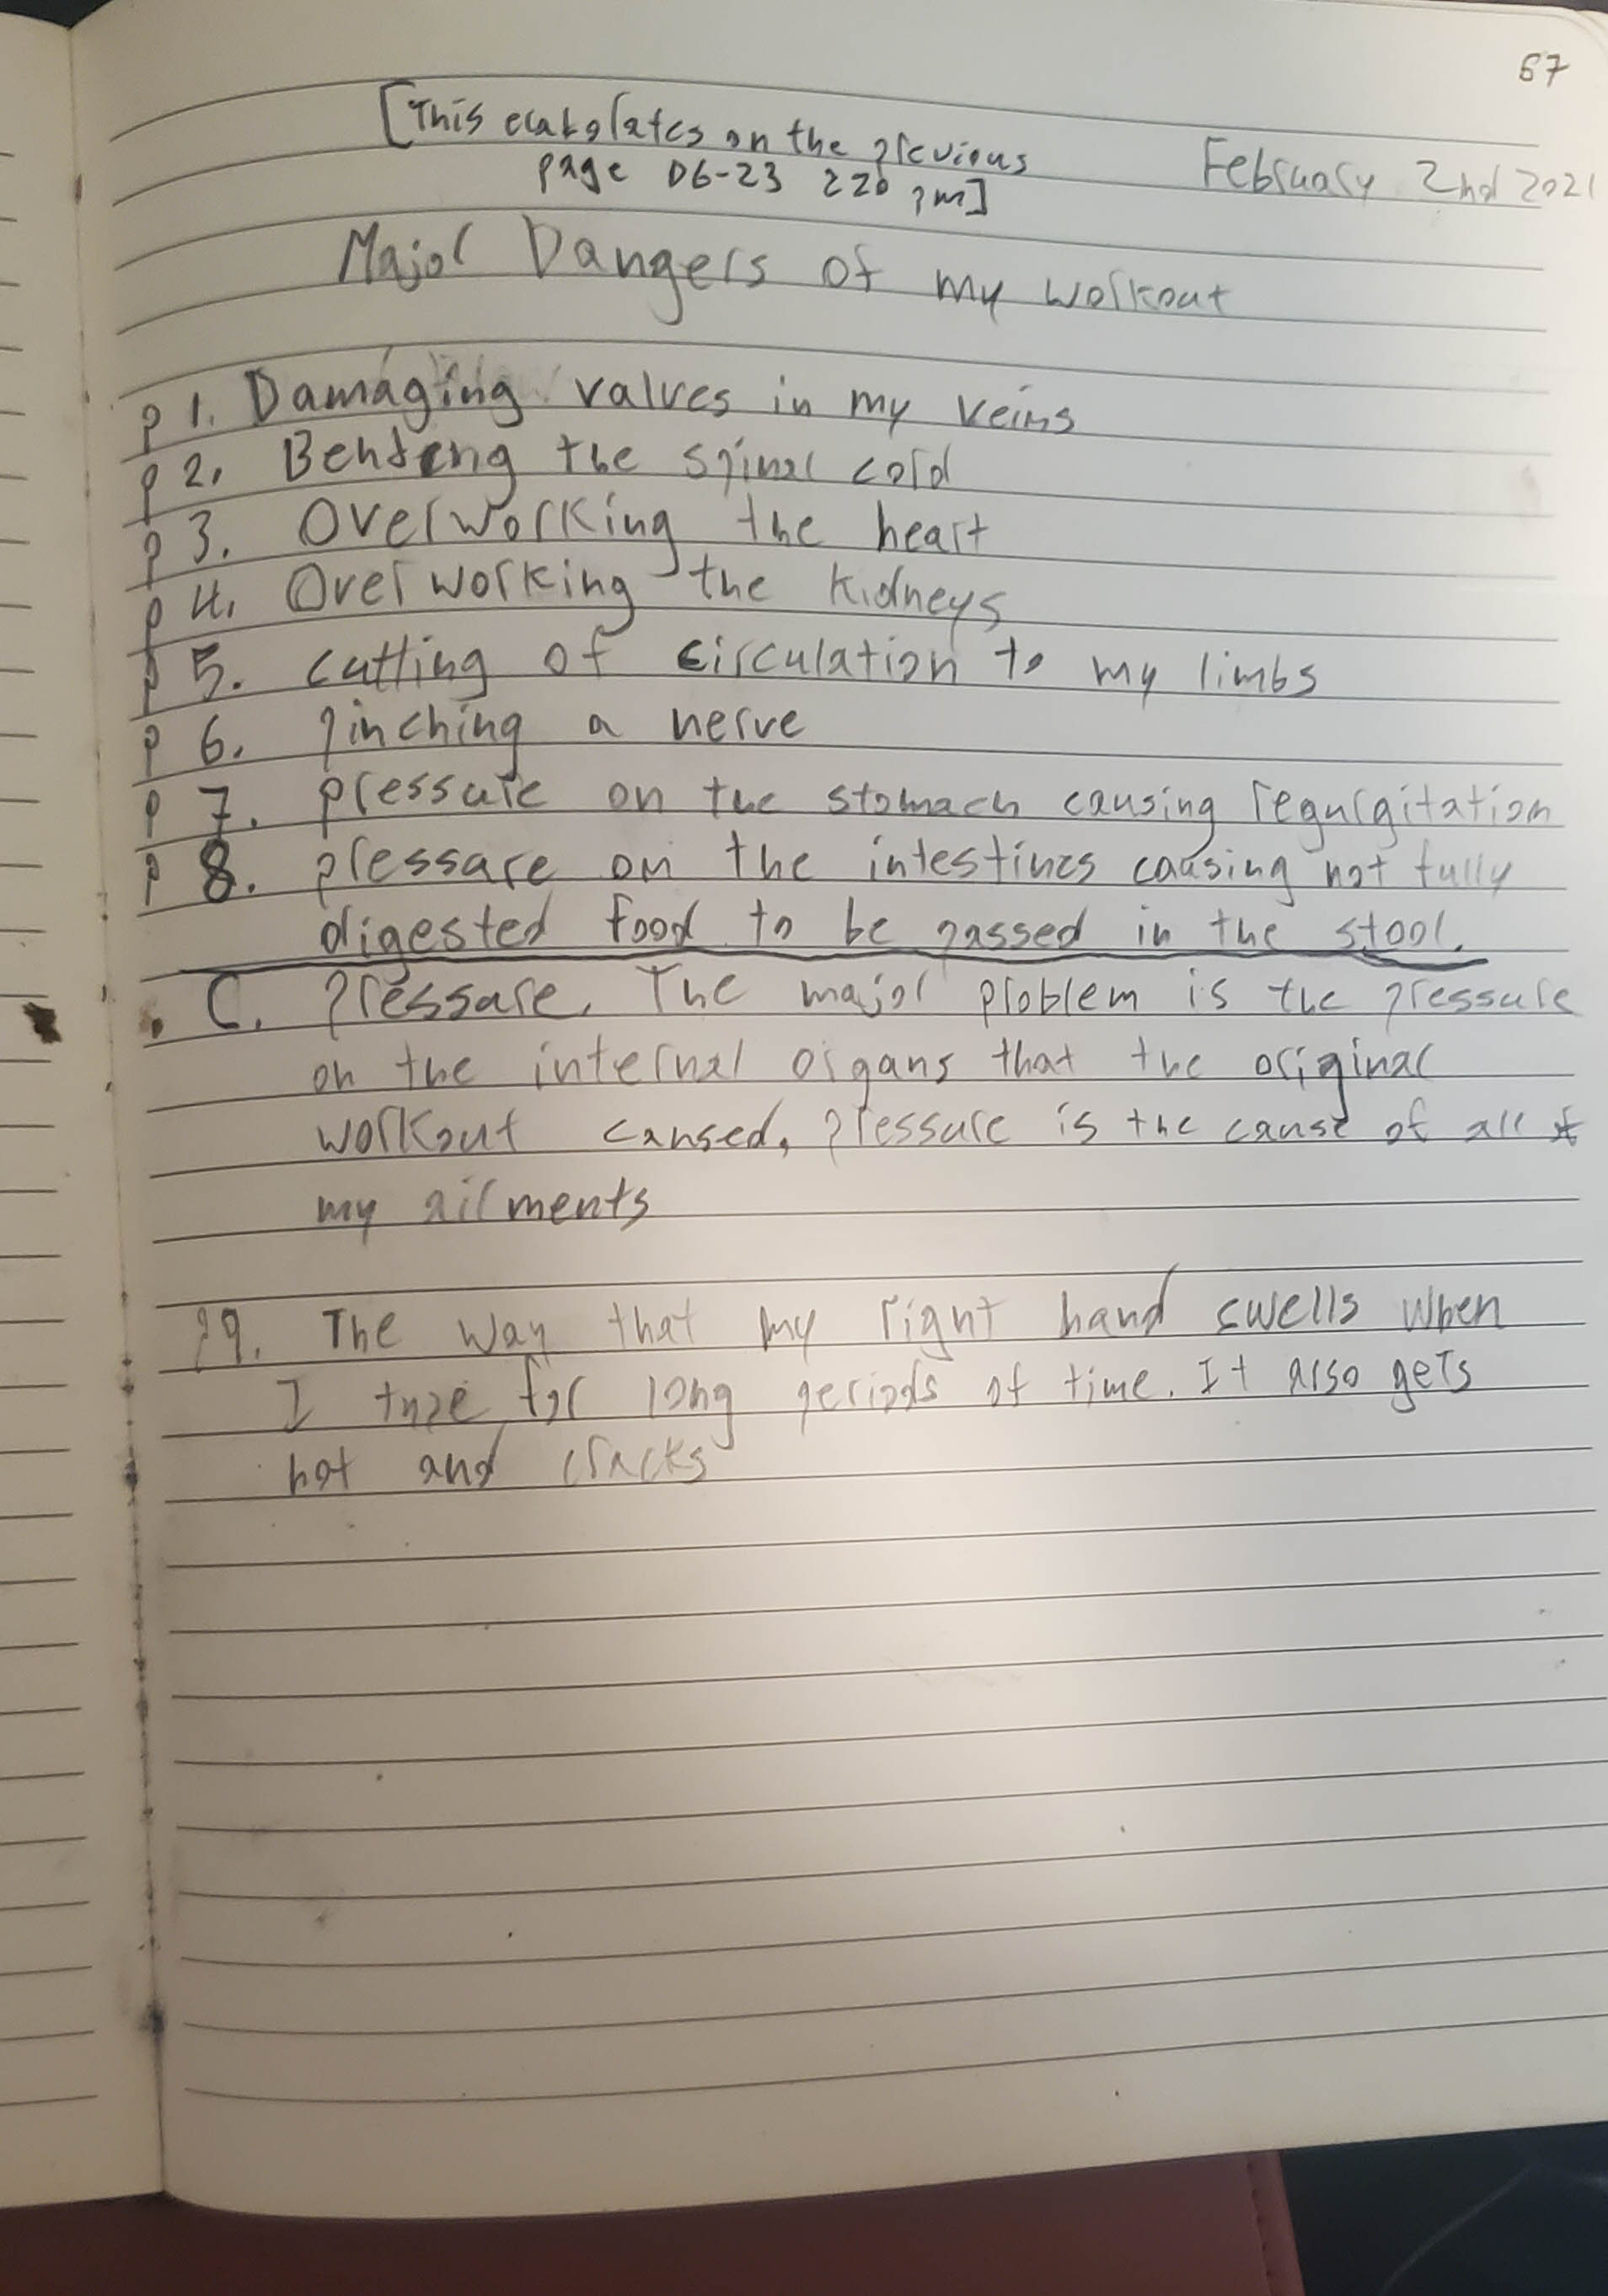 67
[This elaborates on the previous
page 06-23 220 pm]
February 2nd 2021
Major Dangers of my workout
p 1. Damaging valves in my veins
p 2. Bending the spinal cord
p 3. Overworking the heart
p 4. Overworking the kidneys
p 5. cutting of circulation to my limbs
p 6. pinching a nerve
p 7. pressure on the stomach causing regurgitation
p 8. pressure on the intestines causing not fully
digested food to be passed in the stool.
C. Pressure. The major problem is the pressure
on the internal organs that the original
workout caused. pressure is the cause of all
my ailments
p9. The way that my right hand swells when
I type for long periods of time. It also gets
hot and cracks